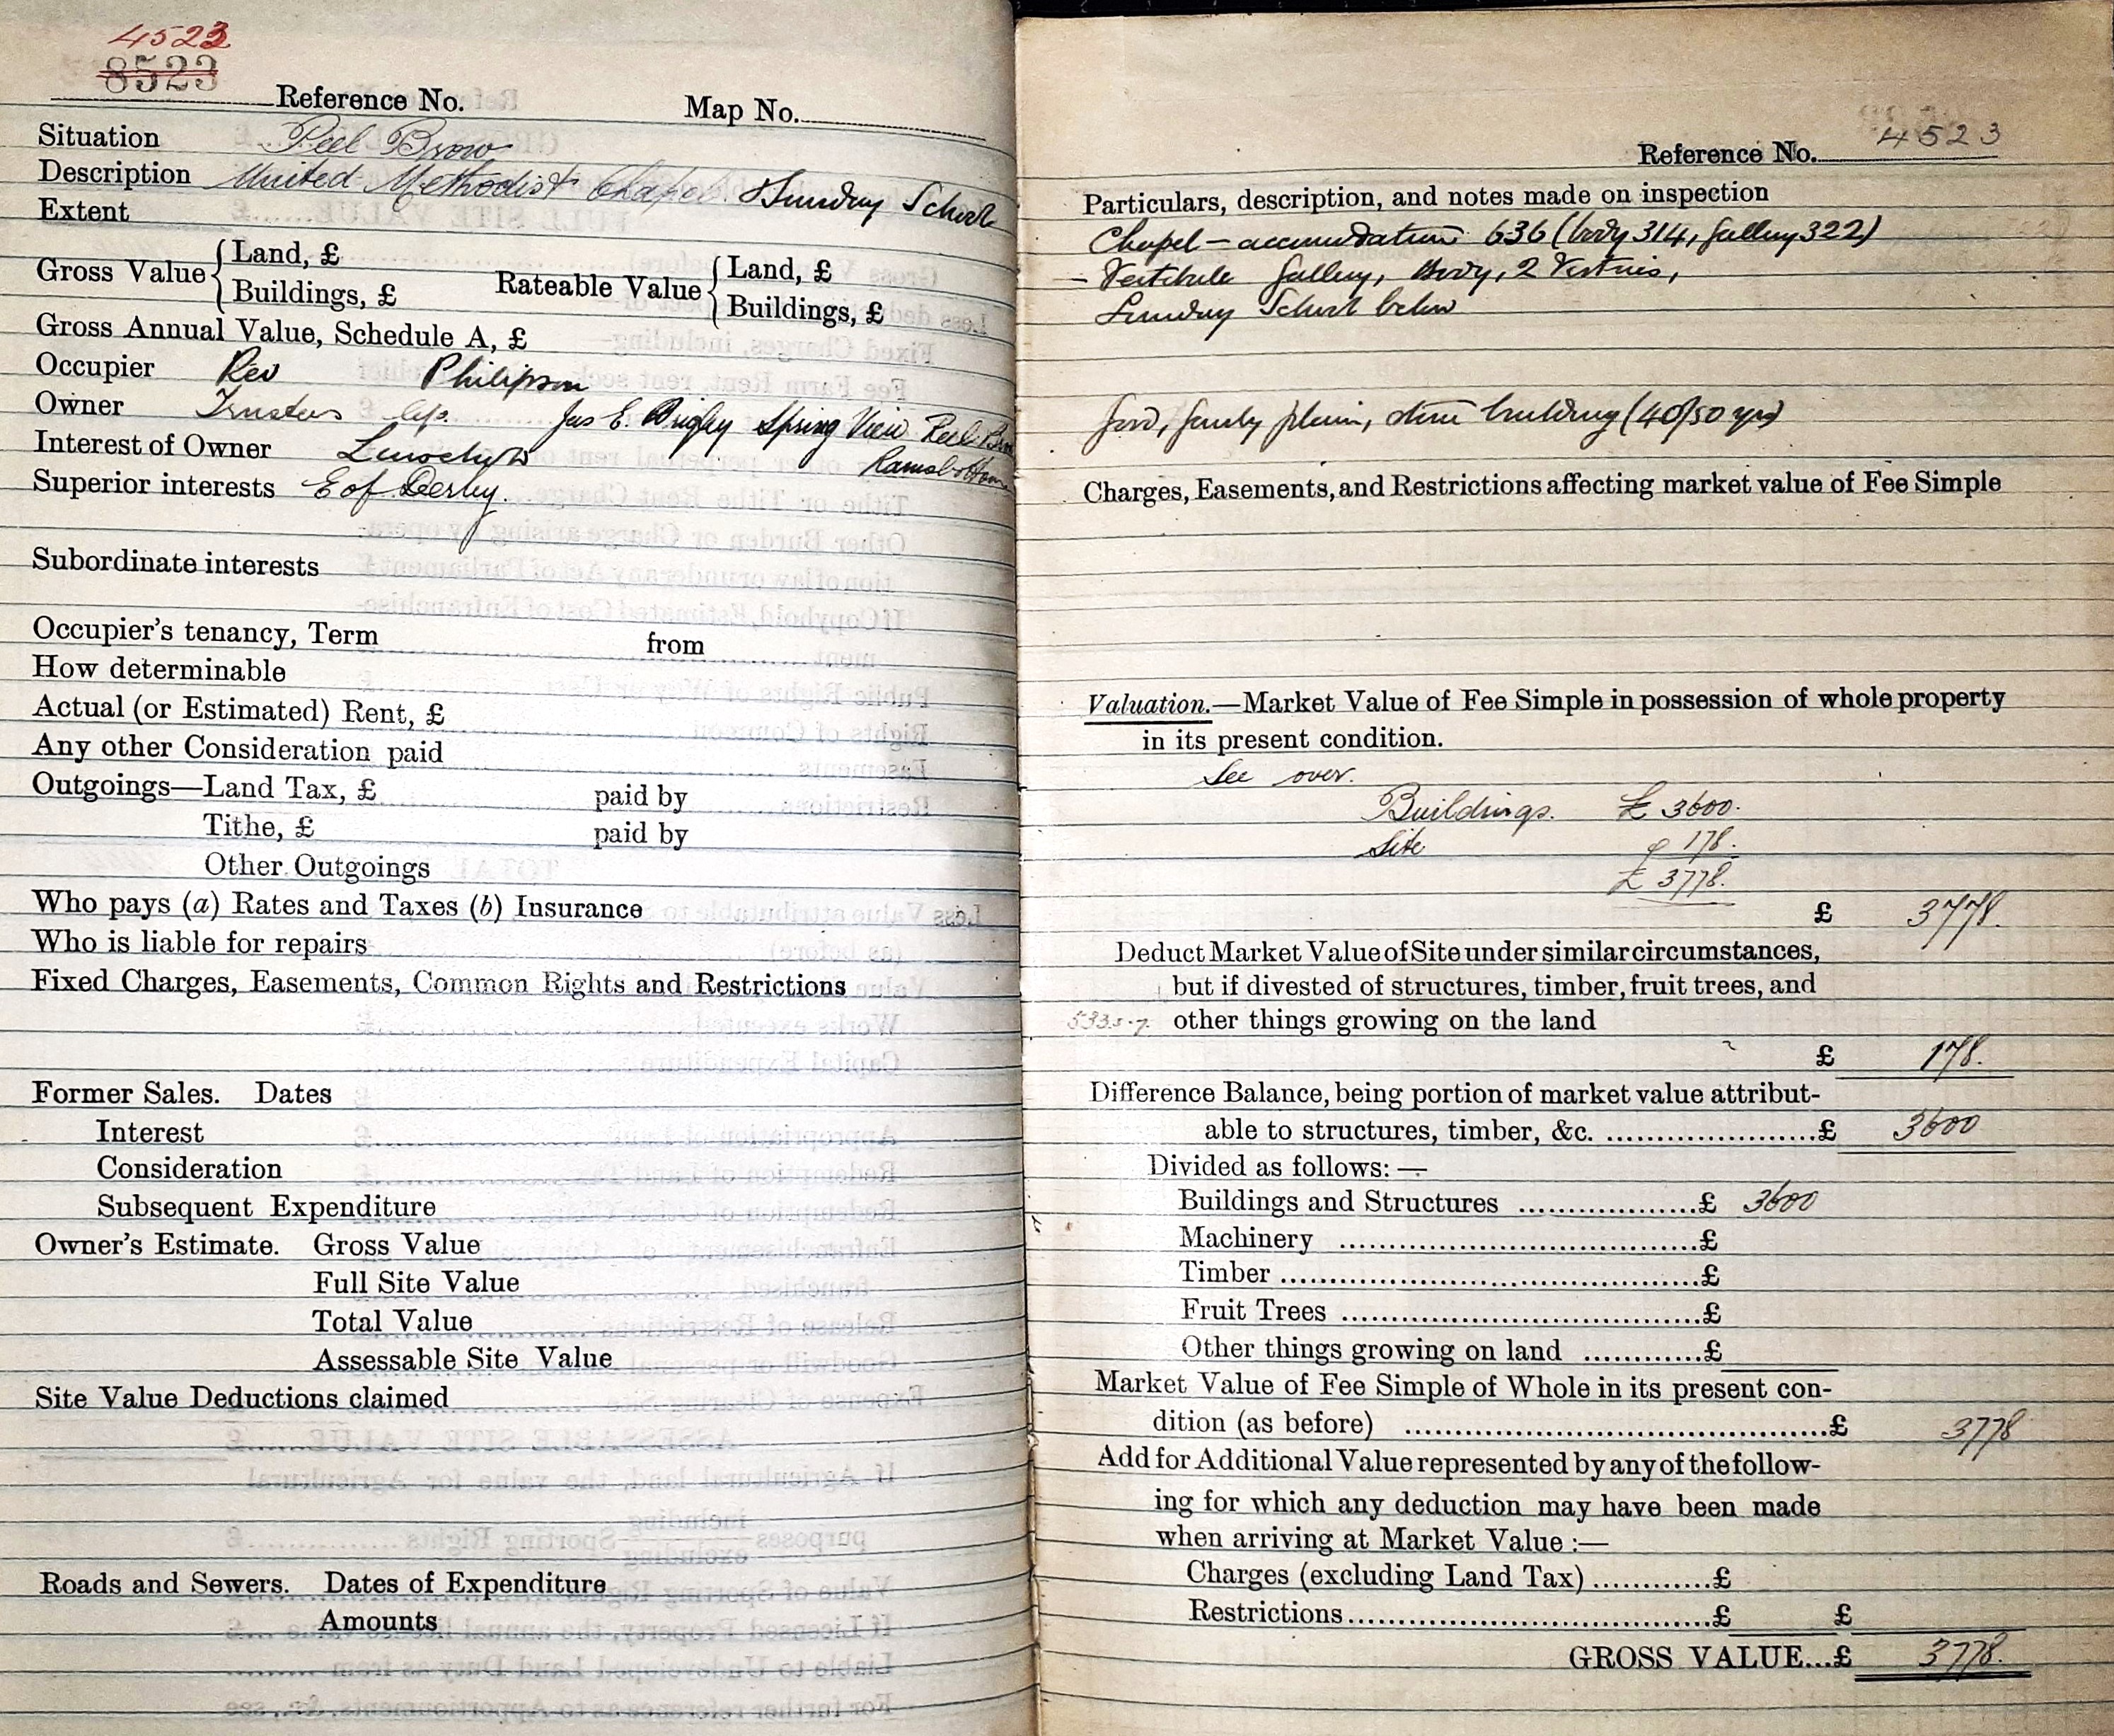 4523
8523
Reference No. Map No.
Situation Peel Brow
Description United Methodist Chapel & Sunday School
Extent
Gross Value { Land, £ Rateable Value { Land, £
Buildings, £ Buildings, £
Gross Annual Value, Schedule A, £
Occupier Rev Philipson
Owner Trustees c/o. Jas E. Brigley Spring View Peel Brow
Ramsbottom
Interest of Owner Leasehold
Superior interests E of Derby.
Subordinate interests
Occupier's tenancy, Term from
How determinable
Actual (or Estimated) Rent, £
Any other Consideration paid
Outgoings—Land Tax, £ paid by
Tithe, £ paid by
Other Outgoings
Who pays (a) Rates and Taxes (b) Insurance
Who is liable for repairs
Fixed Charges, Easements, Common Rights and Restrictions
Former Sales. Dates
Interest
Consideration
Subsequent Expenditure
Owner's Estimate. Gross Value
Full Site Value
Total Value
Assessable Site Value
Site Value Deductions claimed
Roads and Sewers. Dates of Expenditure
Amounts
Reference No. 4523
Particulars, description, and notes made on inspection
Chapel – accomodation 636 (body 314, gallery 322)
– Vestibule Gallery, Body, 2 Vestries,
Sunday School below
Good, fairly plain, stone building (40/50 yrs)
Charges, Easements, and Restrictions affecting market value of Fee Simple
Valuation.—Market Value of Fee Simple in possession of whole property
in its present condition.
See over.
Buildings. £ 3600.
Site 178.
£ 3778.
£ 3778.
Deduct Market Value of Site under similar circumstances,
but if divested of structures, timber, fruit trees, and
other things growing on the land
£ 178.
Difference Balance, being portion of market value attribut-
able to structures, timber, &c. ....................£ 3600
Divided as follows: —
Buildings and Structures ..................£ 3600
Machinery ....................................£
Timber ..........................................£
Fruit Trees ....................................£
Other things growing on land ............£
Market Value of Fee Simple of Whole in its present con-
dition (as before) ..........................................£ 3778
Add for Additional Value represented by any of the follow-
ing for which any deduction may have been made
when arriving at Market Value :—
Charges (excluding Land Tax) ............£
Restrictions......................................£ £
GROSS VALUE...£ 3778.